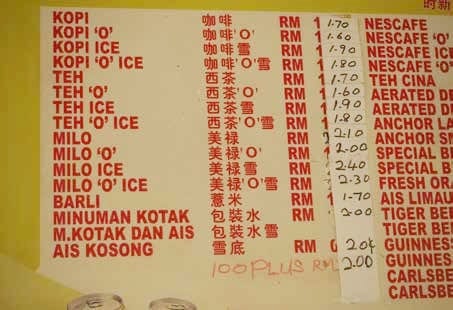 时新
KOPI 咖啡 RM 1.70 NESCAFE
KOPI ‘O’ 咖啡‘O’ RM 1.60 NESCAFE ‘O’
KOPI ICE 咖啡雪 RM 1.90 NESCAFE ICE
KOPI ‘O’ ICE 咖啡‘O’雪 RM 1.80 NESCAFE ‘O’
TEH 西茶 RM 1.70 TEH CINA
TEH ‘O’ 西茶‘O’ RM 1.60 AERATED
TEH ICE 西茶雪 RM 1.90 AERATED
TEH ‘O’ ICE 西茶‘O’雪 RM 1.80 ANCHOR
MILO 美禄 RM 2.10 ANCHOR
MILO ‘O’ 美禄‘O’ RM 2.00 SPECIAL
MILO ICE 美禄雪 RM 2.40 SPECIAL
MILO ‘O’ ICE 美禄‘O’雪 RM 2.30 FRESH
BARLI 薏米 RM 1.70 AIS LIMAU
MINUMAN KOTAK 包裝水 RM 2.00 TIGER
M.KOTAK DAN AIS 包裝水雪 TIGER
AIS KOSONG 雪底 RM GUINNESS
100PLUS RM 2.00 GUINNESS